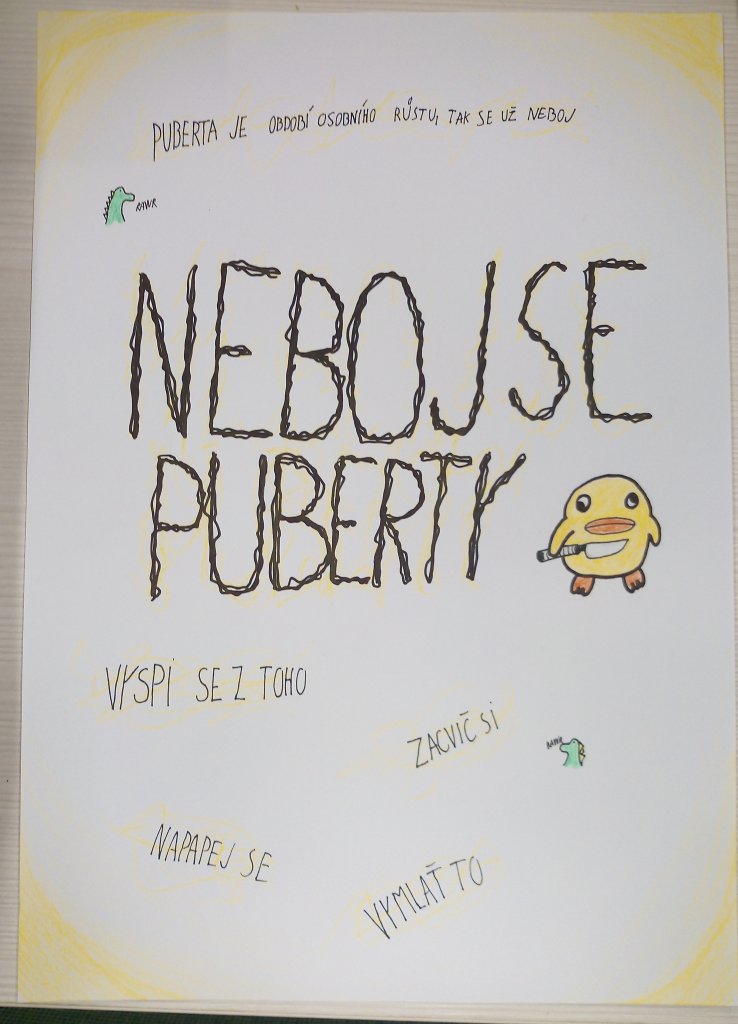 PUBERTA JE OBDOBÍ OSOBNÍHO RŮSTU, TAK SE UŽ NEBOJ
RAWR
NEBOJ SE
PUBERTY
VYSPI SE Z TOHO
ZACVIČ SI
RAWR
NAPAPEJ SE
VYMLAŤ TO